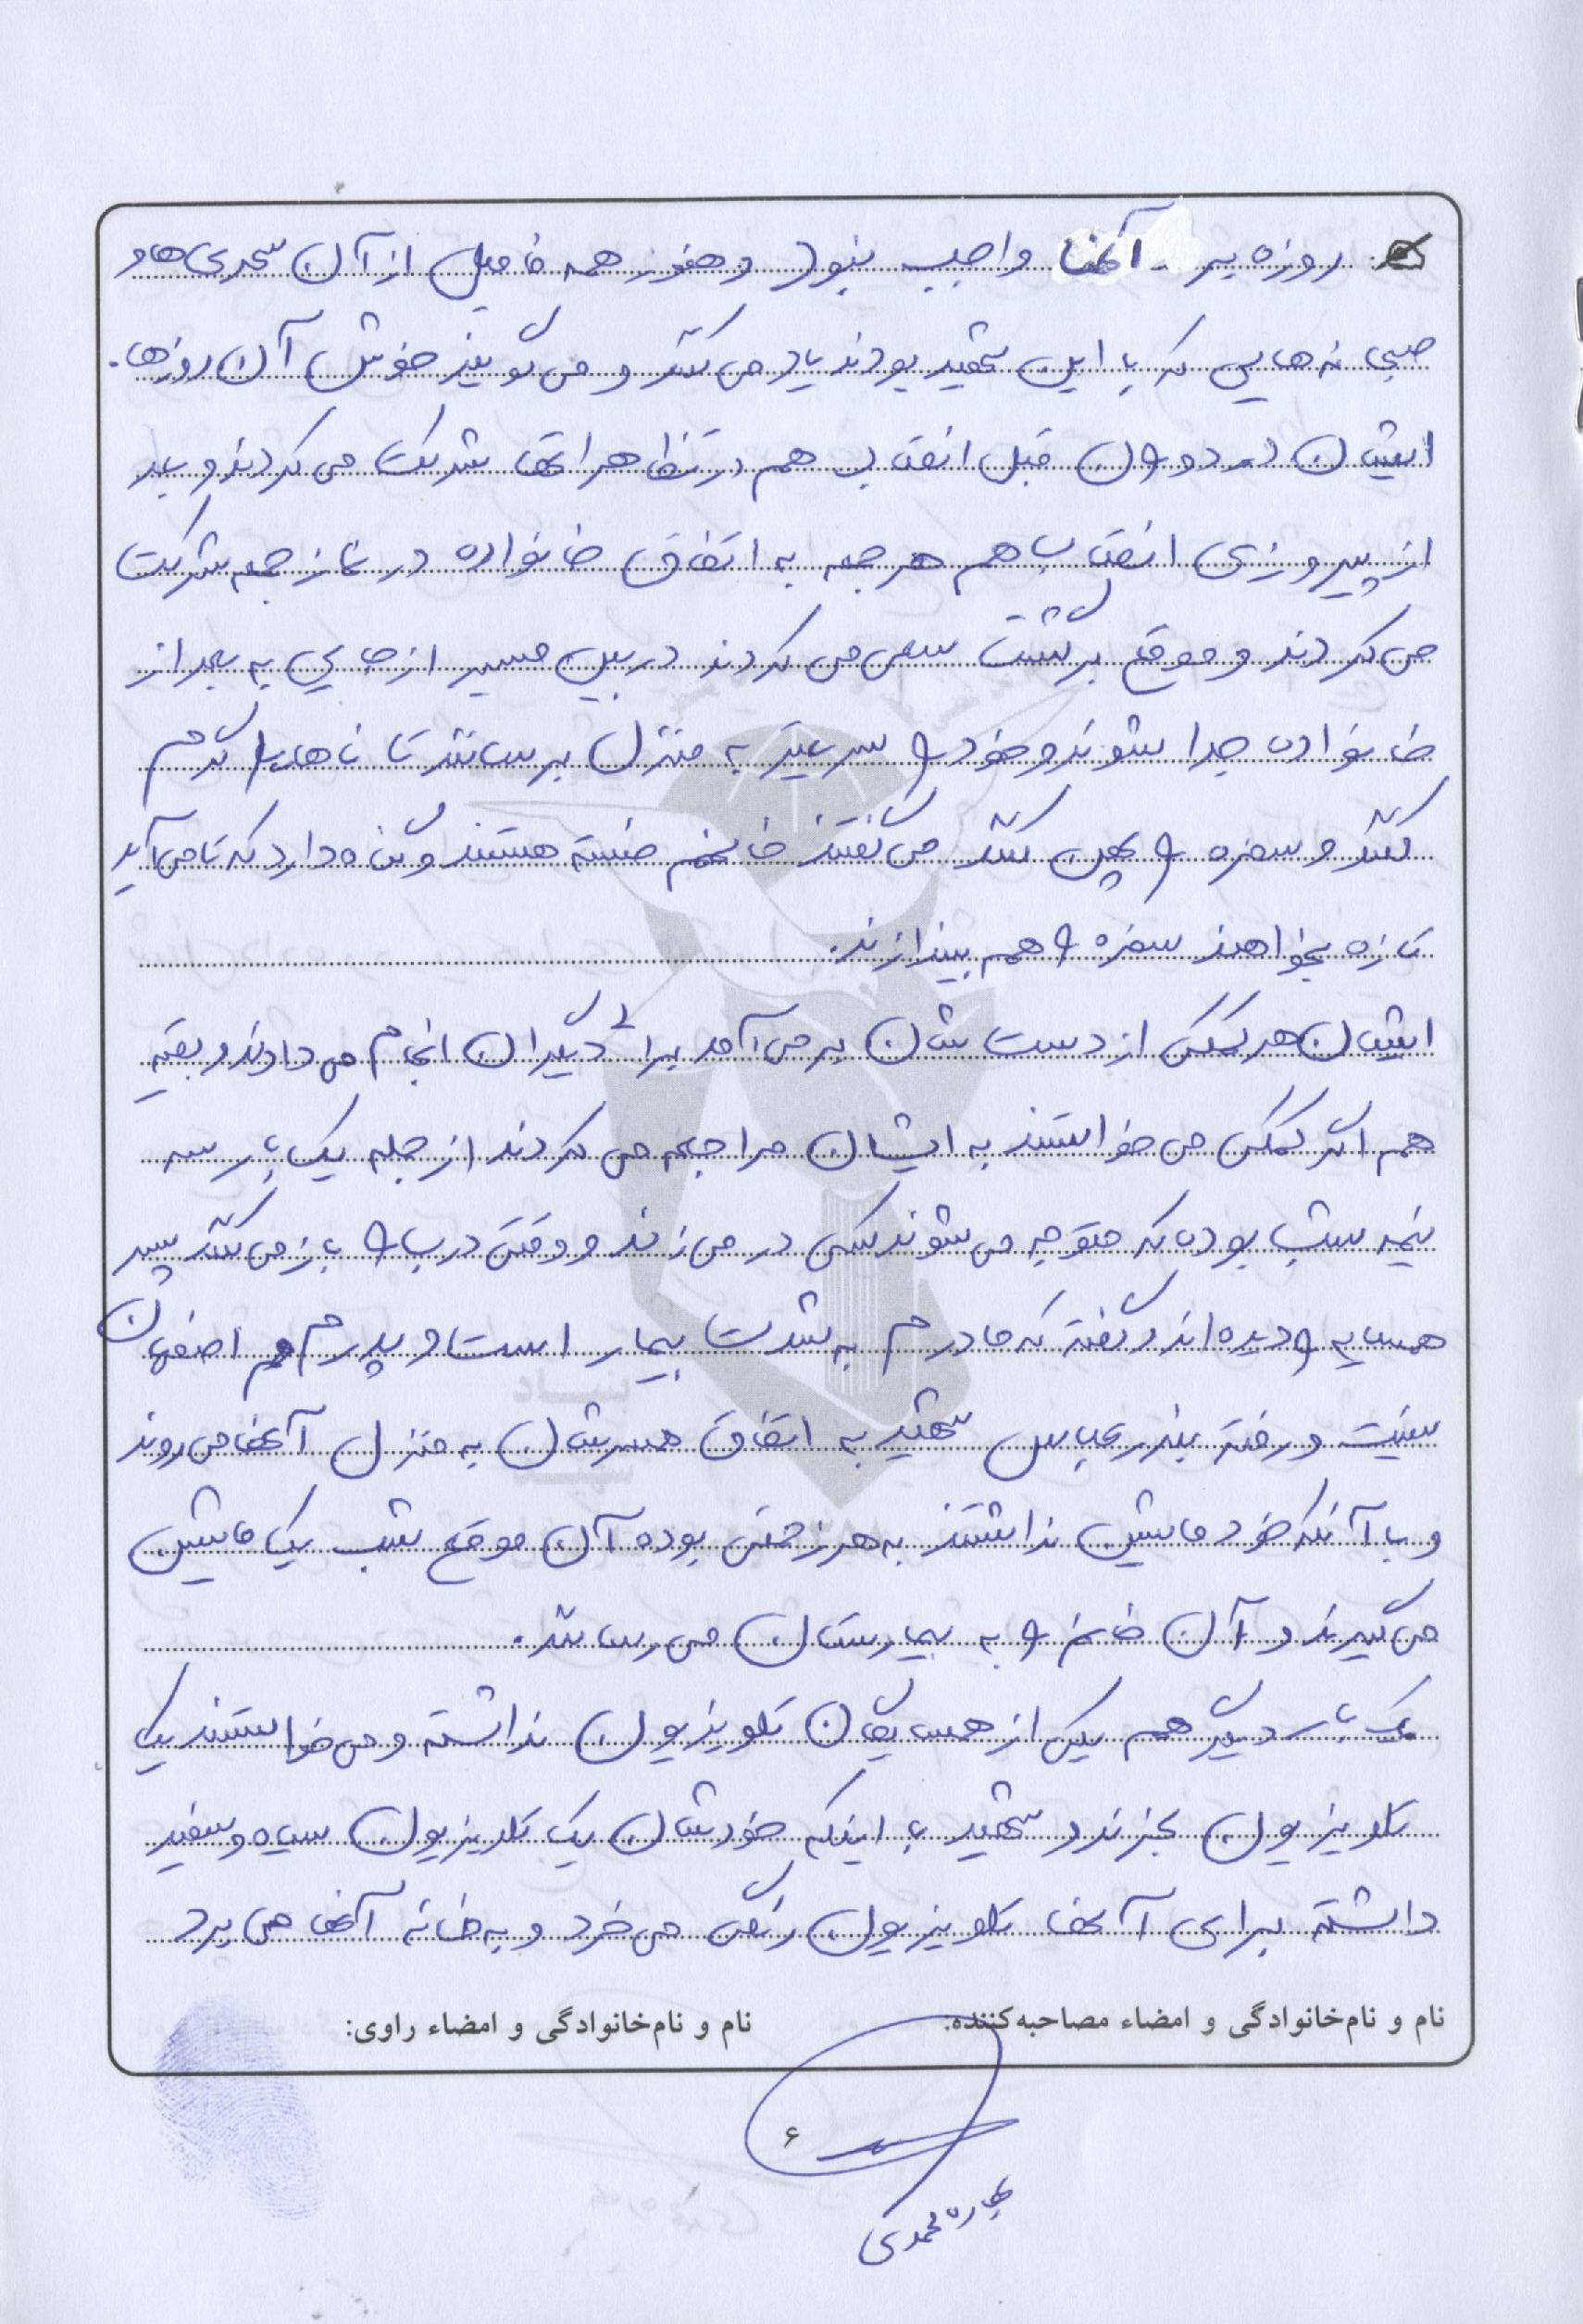 روزه بر آنها واجب نبود و هنوز همه فامیل از آن سحری‌ها و
صبحانه‌هایی که با این شهید بودند یاد می‌کنند و می‌گویند خوش آن روزها.
ایشان در دوران قبل انقلاب هم در تظاهراتها شرکت می‌کردند و بعد
از پیروزی انقلاب هم هر جمعه به اتفاق خانواده در نماز جمعه شرکت
می‌کردند و موقع برگشت سعی می‌کردند در بین مسیر از جایی به بعد از
خانواده جدا شوند و خود را سریعتر به منزل برسانند تا ناهار را گرم
کنند و سفره را پهن کنند می‌گفتند خانمم خسته هستند و گناه دارد که تا می‌آید
تازه بخواهند سفره را هم بیندازند.
ایشان هر کمکی از دستشان بر می‌آمد برای دیگران انجام می‌دادند و بقیه
هم اگر کمکی می‌خواستند به ایشان مراجعه می‌کردند از جمله یک بار سه
نیمه شب بوده که متوجه می‌شوند کسی در می‌زند و وقتی درب را باز می‌کنند پسر
همسایه را دیده‌اند و گفته که مادرم به شدت بیمار است و پدرم هم اصفهان
نیست و رفته بندرعباس شهید به اتفاق همسرشان به منزل آنها می‌روند
و با آنکه خود ماشین نداشتند به هر زحمتی بوده آن موقع شب یک ماشین
می‌گیرند و آن خانم را به بیمارستان می‌رسانند.
یک بار دیگر هم یکی از همسایگان تلویزیون نداشته و می‌خواستند یک
تلویزیون بخرند و شهید با اینکه خودشان یک تلویزیون سیاه و سفید
داشته برای آنها تلویزیون رنگی می‌خرد و به خانه آنها می‌برد
نام و نام‌خانوادگی و امضاء مصاحبه‌کننده:
نام و نام‌خانوادگی و امضاء راوی:
۶
بهاره محمدی